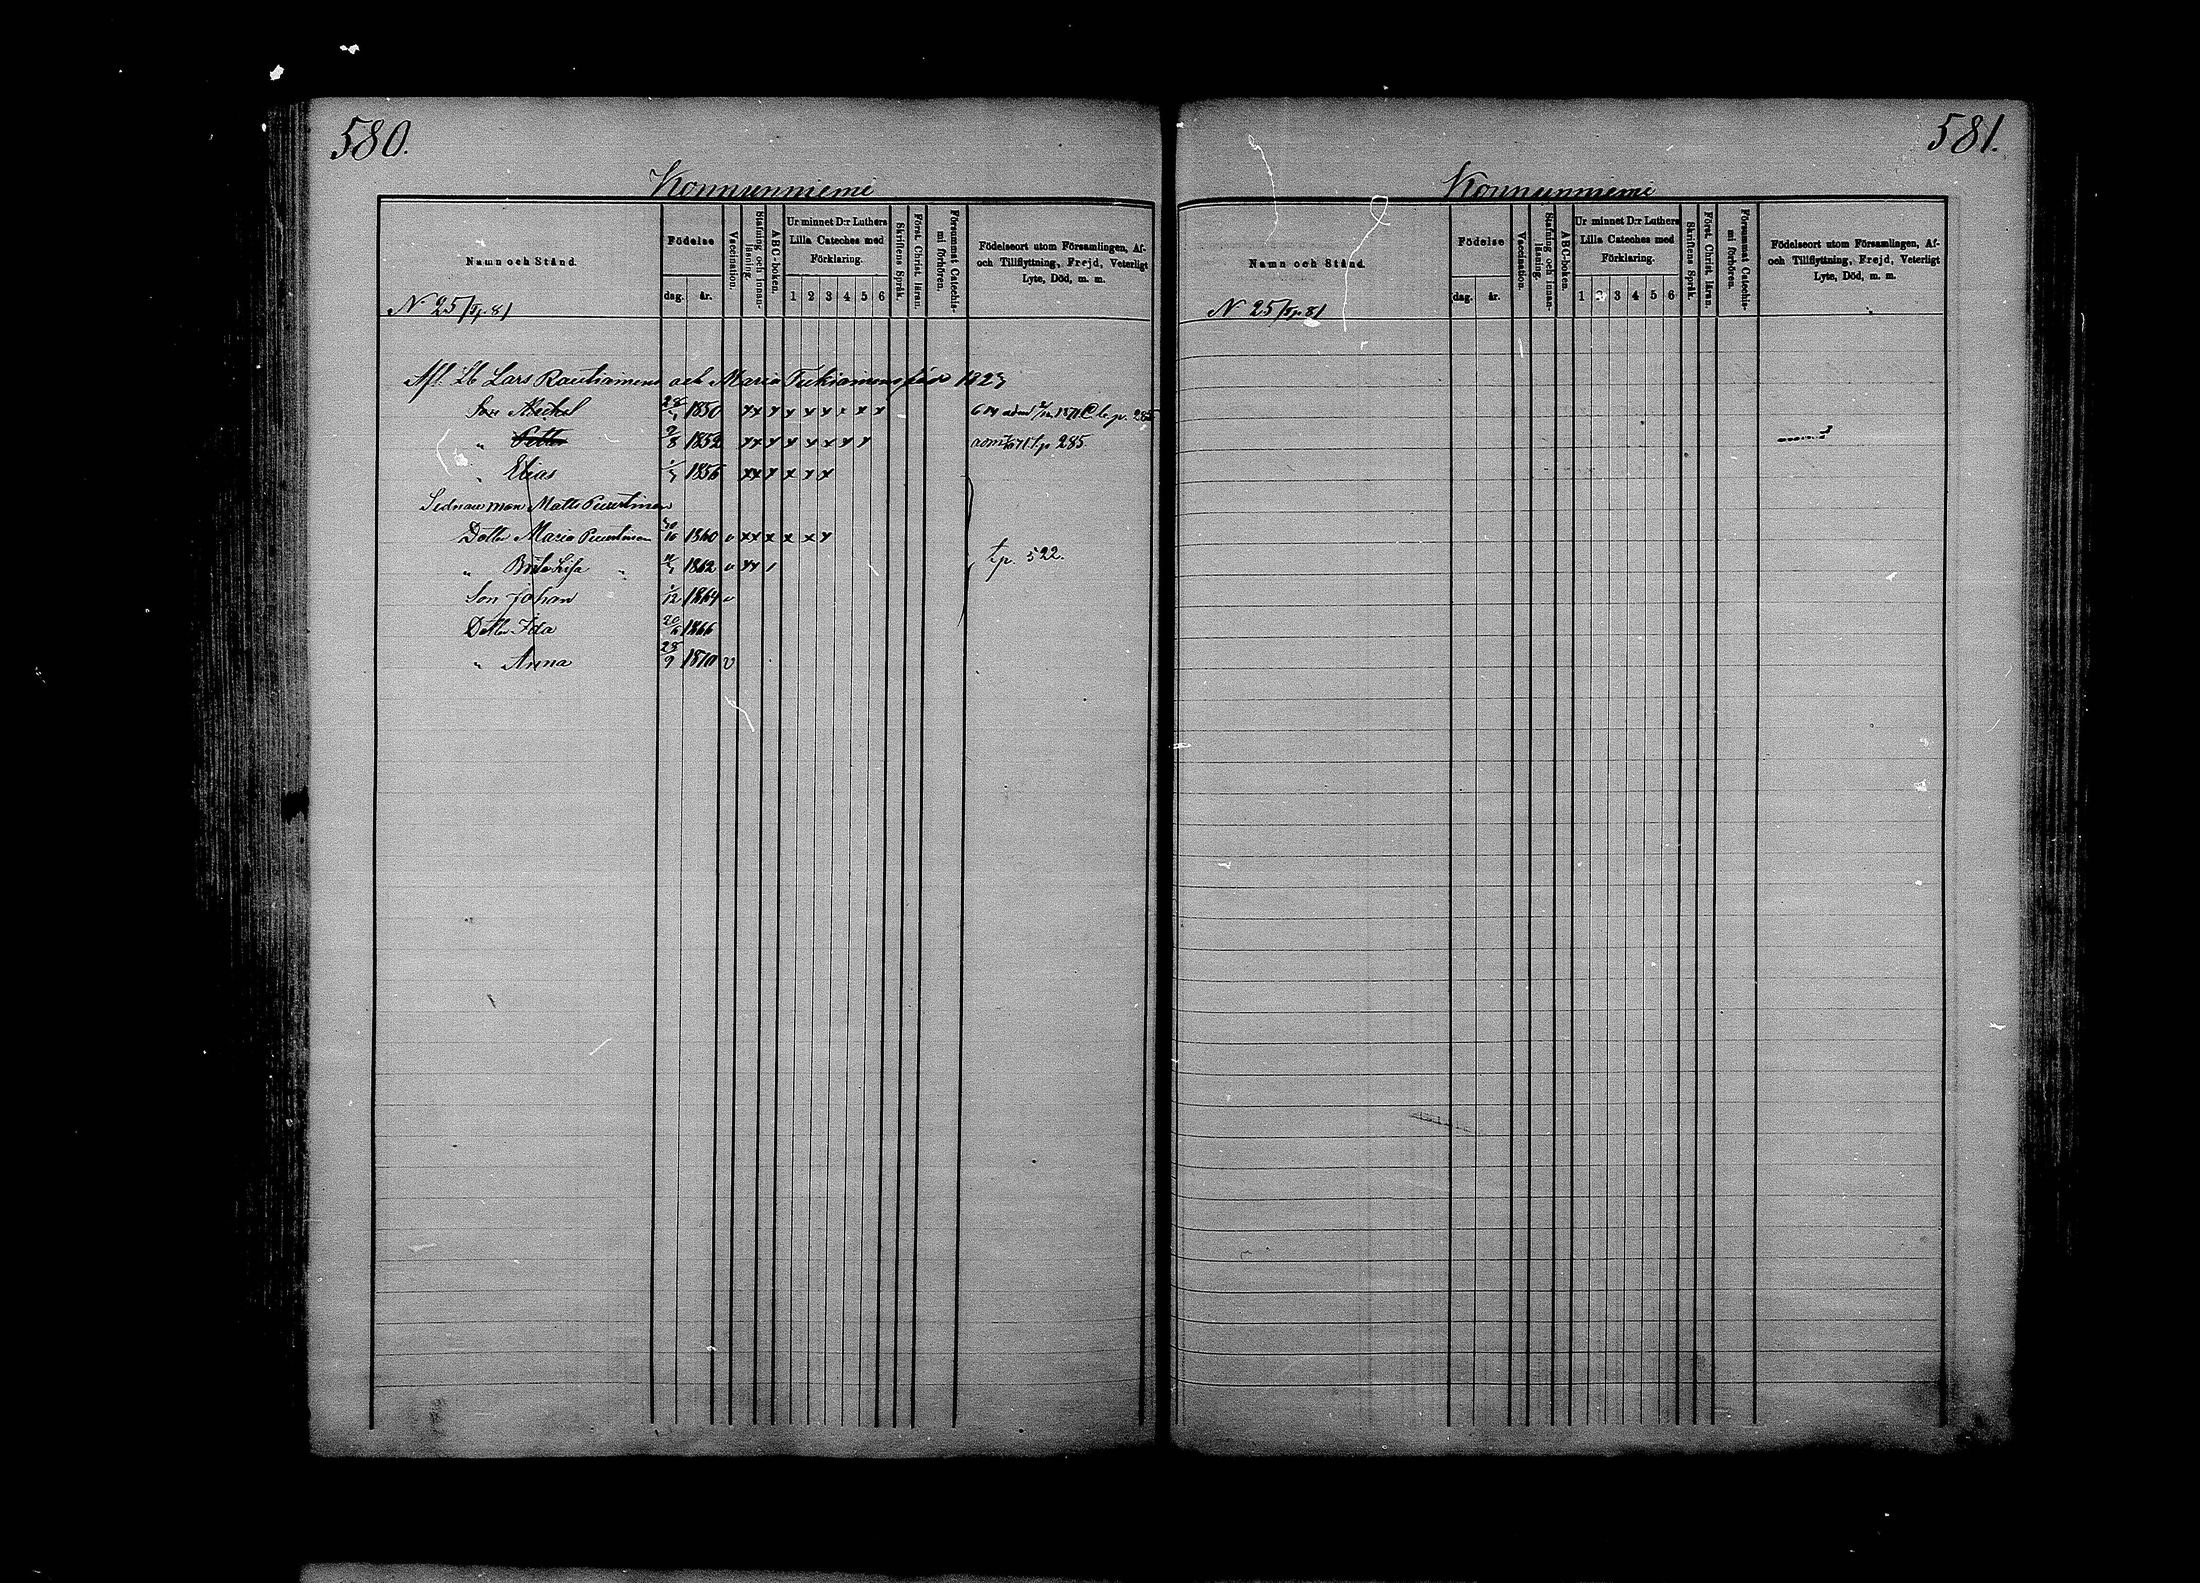 580.
Konnunniemi
Namn och Stånd.
Födelse
dag. år.
Vaccination.
Stafning och innan-läsning.
ABC-boken.
Ur minnet D:r Luthers Lilla Cateches med Förklaring.
1 2 3 4 5 6
Skriftens Språk.
Först. Christ. läran.
Försummat Catechis-mi förhören.
Födelseort utom Församlingen, Af-
och Tillflyttning, Frejd, Veterligt
Lyte, Död, m. m.
N 25
Afl. Lb Lars Rautiainens och Maria Tukiainens född 1823
Son Michel 1850 x x x x x x x x x
" Petter 9/8 1852 x x x x x x x x p 285
" Elias 1856 x x x x x x
Sednare man Matts
Dotter Maria 30/10 1860 v x x x x x x
" Brita Lisa " 1862 v
Son Johan 12 1864 v
Dotter Ida 20/6 1866
" Anna 23/9 1870 v
t.p. 522.
581.
Konnunniemi
Namn och Stånd.
Födelse
dag. år.
Vaccination.
Stafning och innan-läsning.
ABC-boken.
Ur minnet D:r Luthers Lilla Cateches med Förklaring.
1 2 3 4 5 6
Skriftens Språk.
Först. Christ. läran.
Försummat Catechis-mi förhören.
Födelseort utom Församlingen, Af-
och Tillflyttning, Frejd, Veterligt
Lyte, Död, m. m.
N 25